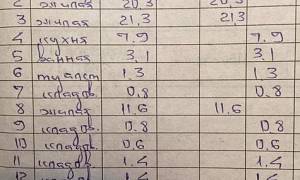 2 жилая 20,3 20,3
3 жилая 21,3 21,3
4 кухня 7,9 7,9
5 ванная 3,1 3,1
6 туалет 1,3 1,3
7 кладов. 0,8 0,8
8 жилая 11,6 11,6
9 кладов. 0,8 0,8
10 кладов. 0,6 0,6
11 кладов. 1,4 1,4
12 кладов. 1,4 1,4